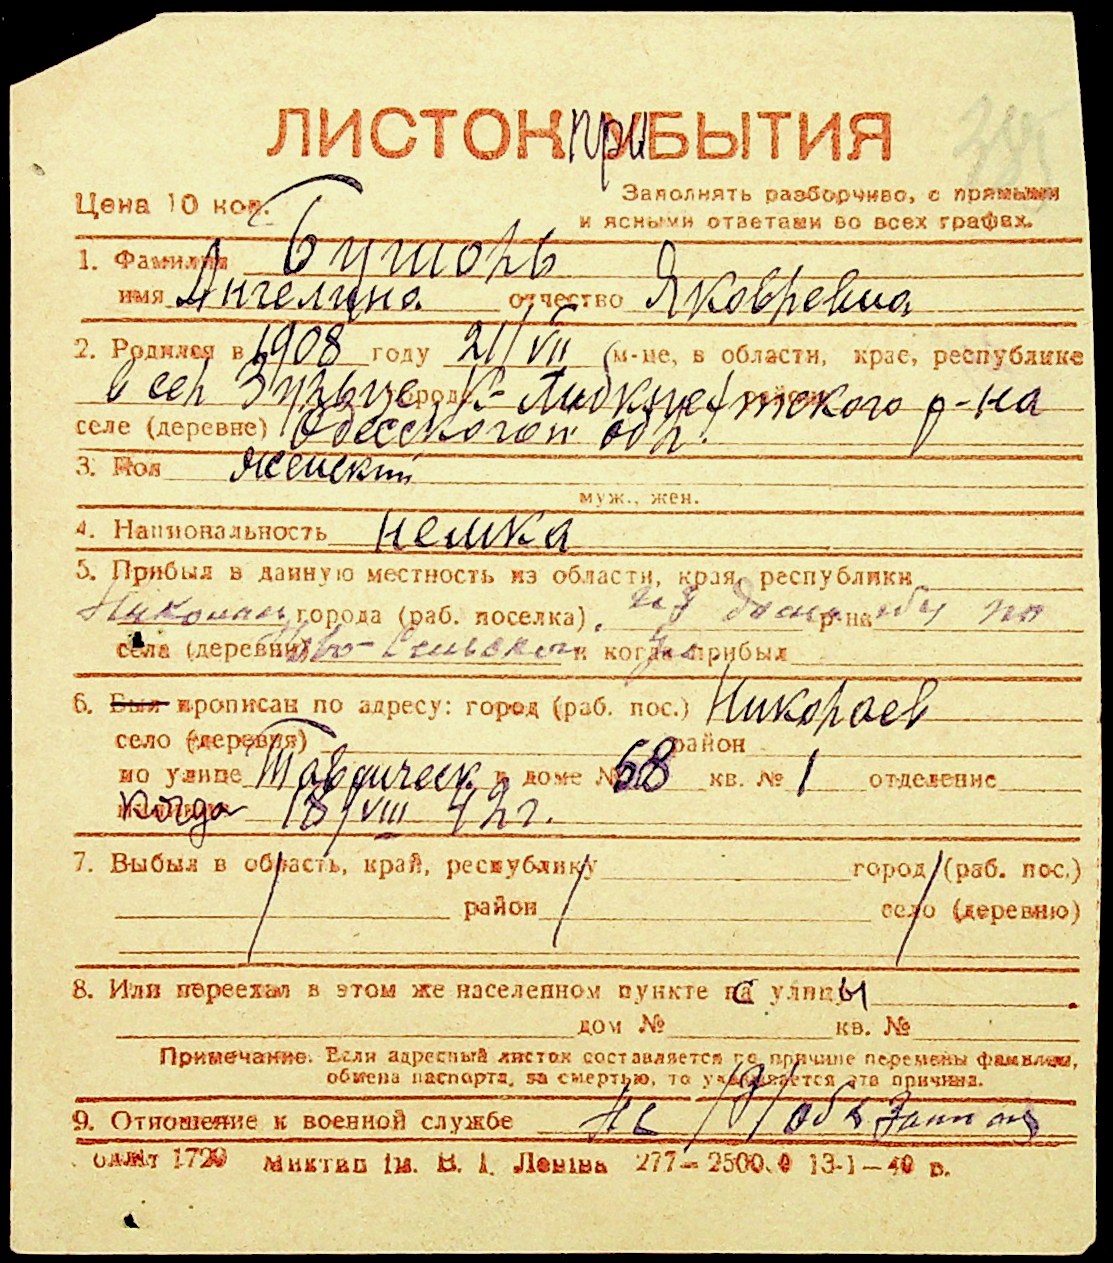 ЛИСТОК при УБЫТИЯ
385
Цена 10 коп. Заполнять разборчиво, с прямыми
и ясными ответами во всех графах.
1. Фамилия Бушорь
имя Ангелина отчество Яковлевна
2. Родился в 1908 году 21/VII м-це, в области, крае, республике
в сел Зульце городе К-Либкнехтского р-на
селе (деревне) Одесского обл.
3. Пол женский
муж., жен.
4. Национальность немка
5. Прибыл в данную местность из области, края, республики
Николаев города (раб. поселка), из р-на по
села (деревни) Ново- и когда прибыл
6. Был прописан по адресу: город (раб. пос.) Николаев
село (деревня) район
по улице Таврическ в доме № 68 кв. № 1 отделение
милиции Когда 18/VIII 42г.
7. Выбыл в область, край, республику город (раб. пос.)
район село (деревню)
8. Или переехал в этом же населенном пункте с улицы
дом № кв. №
Примечание. Если адресный листок составляется по причине перемены фамилии,
обмена паспорта, за смертью, то указывается эта причина.
9. Отношение к военной службе не обязанная
Облліт 1729 Миктип ім. В. І. Леніна 277—2500.0 13-1—40 р.